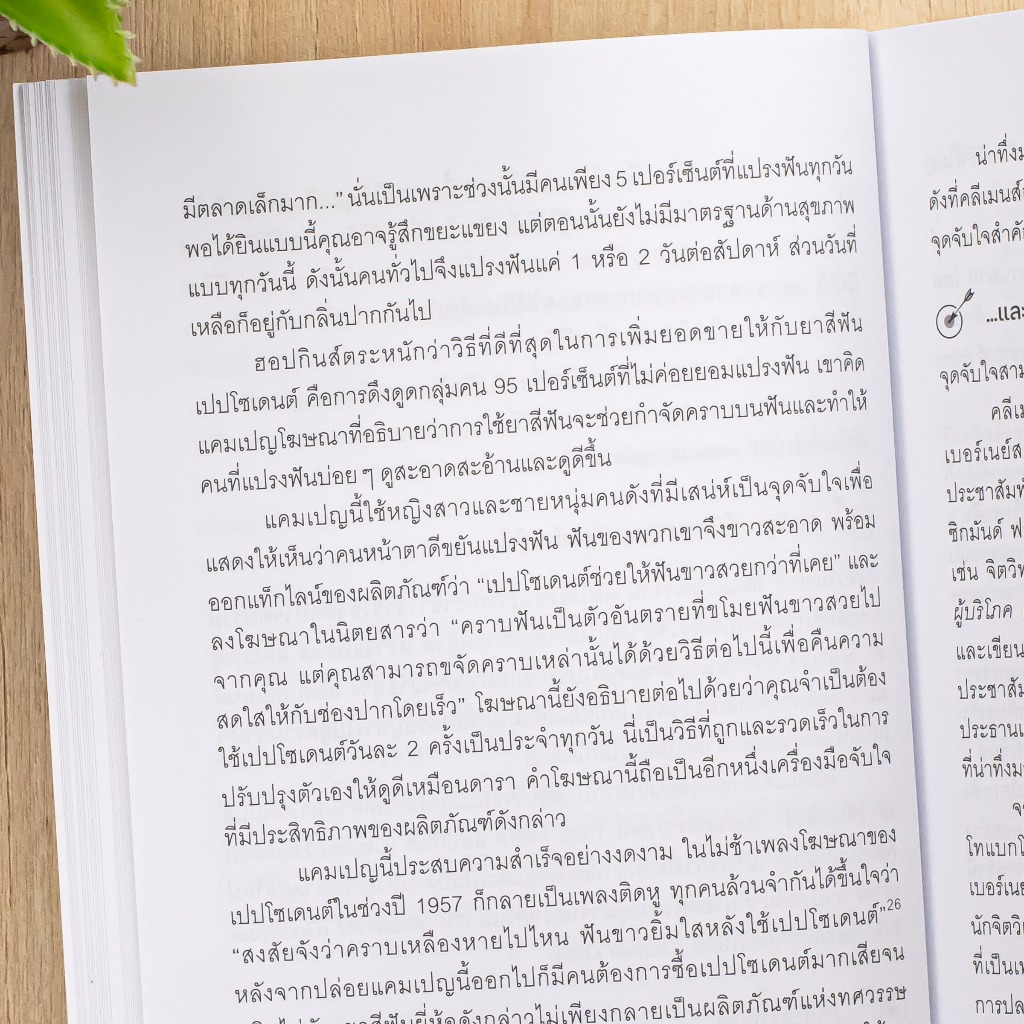 มีตลาดเล็กมาก...” นั่นเป็นเพราะช่วงนั้นมีคนเพียง 5 เปอร์เซ็นต์ที่แปรงฟันทุกวัน
พอได้ยินแบบนี้คุณอาจรู้สึกขยะแขยง แต่ตอนนั้นยังไม่มีมาตรฐานด้านสุขภาพ
แบบทุกวันนี้ ดังนั้นคนทั่วไปจึงแปรงฟันแค่ 1 หรือ 2 วันต่อสัปดาห์ ส่วนวันที่
เหลือก็อยู่กับกลิ่นปากกันไป
ฮอปกินส์ตระหนักว่าวิธีที่ดีที่สุดในการเพิ่มยอดขายให้กับยาสีฟัน
เปปโซเดนต์ คือการดึงดูดกลุ่มคน 95 เปอร์เซ็นต์ที่ไม่ค่อยยอมแปรงฟัน เขาคิด
แคมเปญโฆษณาที่อธิบายว่าการใช้ยาสีฟันจะช่วยกำจัดคราบบนฟันและทำให้
คนที่แปรงฟันบ่อย ๆ ดูสะอาดสะอ้านและดูดีขึ้น
แคมเปญนี้ใช้หญิงสาวและชายหนุ่มคนดังที่มีเสน่ห์เป็นจุดจับใจเพื่อ
แสดงให้เห็นว่าคนหน้าตาดีขยันแปรงฟัน ฟันของพวกเขาจึงขาวสะอาด พร้อม
ออกแท็กไลน์ของผลิตภัณฑ์ว่า “เปปโซเดนต์ช่วยให้ฟันขาวสวยกว่าที่เคย” และ
ลงโฆษณาในนิตยสารว่า “คราบฟันเป็นตัวอันตรายที่ขโมยฟันขาวสวยไป
จากคุณ แต่คุณสามารถขจัดคราบเหล่านั้นได้ด้วยวิธีต่อไปนี้เพื่อคืนความ
สดใสให้กับช่องปากโดยเร็ว” โฆษณานี้ยังอธิบายต่อไปด้วยว่าคุณจำเป็นต้อง
ใช้เปปโซเดนต์วันละ 2 ครั้งเป็นประจำทุกวัน นี่เป็นวิธีที่ถูกและรวดเร็วในการ
ปรับปรุงตัวเองให้ดูดีเหมือนดารา คำโฆษณานี้ถือเป็นอีกหนึ่งเครื่องมือจับใจ
ที่มีประสิทธิภาพของผลิตภัณฑ์ดังกล่าว
แคมเปญนี้ประสบความสำเร็จอย่างงดงาม ในไม่ช้าเพลงโฆษณาของ
เปปโซเดนต์ในช่วงปี 1957 ก็กลายเป็นเพลงติดหู ทุกคนล้วนจำกันได้ขึ้นใจว่า
“สงสัยจังว่าคราบเหลืองหายไปไหน ฟันขาวยิ้มใสหลังใช้เปปโซเดนต์”26
หลังจากปล่อยแคมเปญนี้ออกไปก็มีคนต้องการซื้อเปปโซเดนต์มากเสียจน
ยาสีฟันยี่ห้อดังกล่าวไม่เพียงกลายเป็นผลิตภัณฑ์แห่งทศวรรษ
น่าทึ่ง
ดังที่คลีเมนส์
จุดจับใจสำคั
...และ
จุดจับใจสาม
คลีเม
เบอร์เนย์ส
ประชาสัมพั
ซิกมันด์ ฟ
เช่น จิตวิท
ผู้บริโภค
และเขียน
ประชาสัม
ประธานเ
ที่น่าทึ่ง
จ
โทแบกโ
เบอร์เนย
นักจิตวิ
ที่เป็นเ
การปล